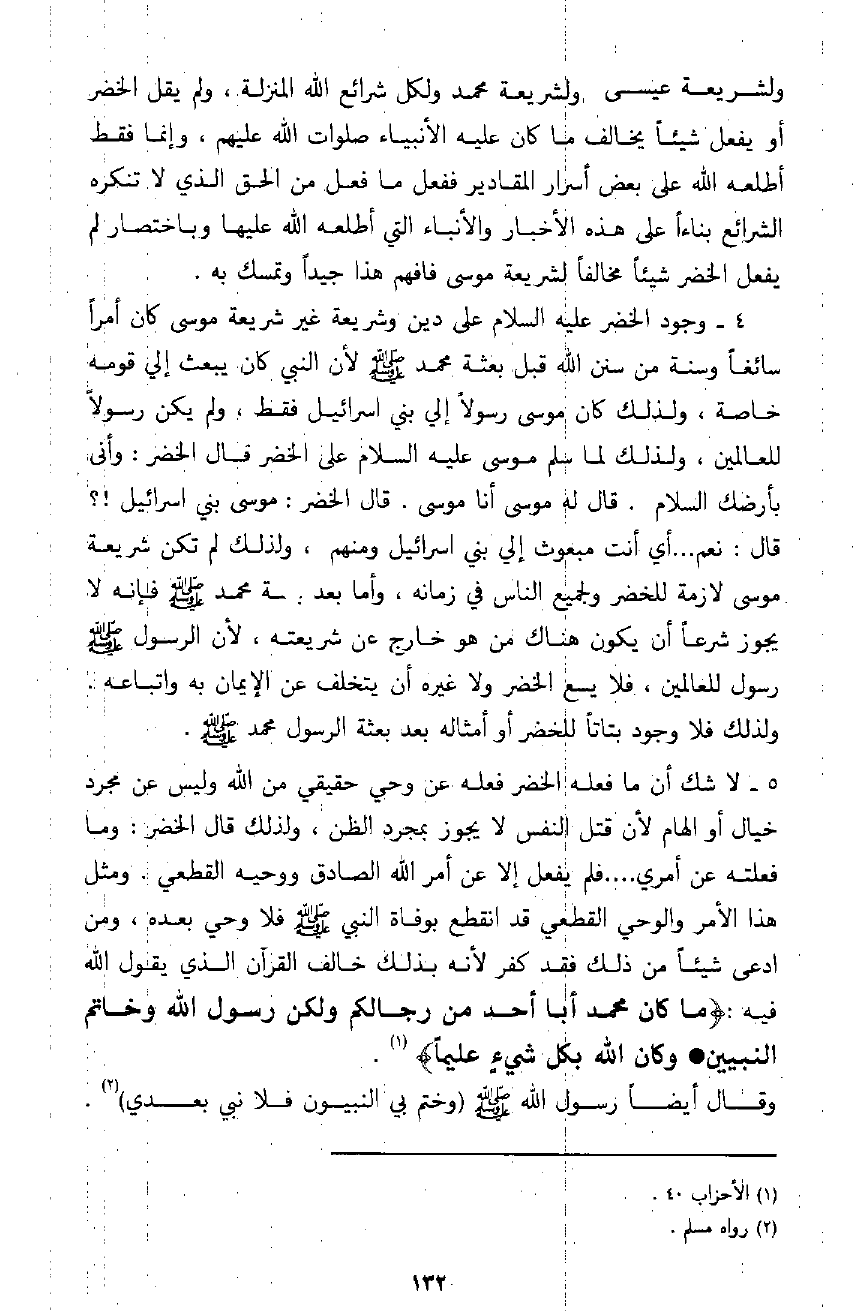 ولشريعة عيسى ولشريعة محمد ولكل شرائع الله المنزلة ، ولم يقل الخضر
أو يفعل شيئاً يخالف ما كان عليه الأنبياء صلوات الله عليهم ، وإنما فقط
أطلعه الله على بعض أسرار المقادير ففعل ما فعل من الحق الذي لا تنكره
الشرائع بناءاً على هذه الأخبار والأنباء التي أطلعه الله عليها وباختصار لم
يفعل الخضر شيئاً مخالفاً لشريعة موسى فافهم هذا جيداً وتمسك به .
٤ ـ وجود الخضر عليه السلام على دين وشريعة غير شريعة موسى كان أمراً
سائغاً وسنة من سنن الله قبل بعثة محمد ﷺ لأن النبي كان يبعث إلي قومه
خاصة ، ولذلك كان موسى رسولاً إلي بني اسرائيل فقط ، ولم يكن رسولاً
للعالمين ، ولذلك لما سلم موسى عليه السلام على الخضر قال الخضر : وأنى
بأرضك السلام . قال له موسى أنا موسى . قال الخضر : موسى بني اسرائيل !؟
قال : نعم...أي أنت مبعوث إلي بني اسرائيل ومنهم ، ولذلك لم تكن شريعة
موسى لازمة للخضر ولجميع الناس في زمانه ، وأما بعد ـة محمد ﷺ فإنه لا
يجوز شرعاً أن يكون هناك من هو خارج عن شريعته ، لأن الرسول ﷺ
رسول للعالمين ، فلا يسع الخضر ولا غيره أن يتخلف عن الإيمان به واتباعه .
ولذلك فلا وجود بتاتاً للخضر أو أمثاله بعد بعثة الرسول محمد ﷺ .
٥ ـ لا شك أن ما فعله الخضر فعله عن وحي حقيقي من الله وليس عن مجرد
خيال أو الهام لأن قتل النفس لا يجوز بمجرد الظن ، ولذلك قال الخضر : وما
فعلته عن أمري....فلم يفعل إلا عن أمر الله الصادق ووحيه القطعي . ومثل
هذا الأمر والوحي القطعي قد انقطع بوفاة النبي ﷺ فلا وحي بعده ، ومن
ادعى شيئاً من ذلك فقد كفر لأنه بذلك خالف القرآن الذي يقول الله
فيه :﴿ما كان محمد أبا أحد من رجالكم ولكن رسول الله وخاتم
النبيين● وكان الله بكل شيءٍ عليماً﴾ (١) .
وقال أيضاً رسول الله ﷺ (وختم بي النبيون فلا نبي بعدي)(٢) .
(١) الأحزاب ٤٠ .
(٢) رواه مسلم .
١٣٢